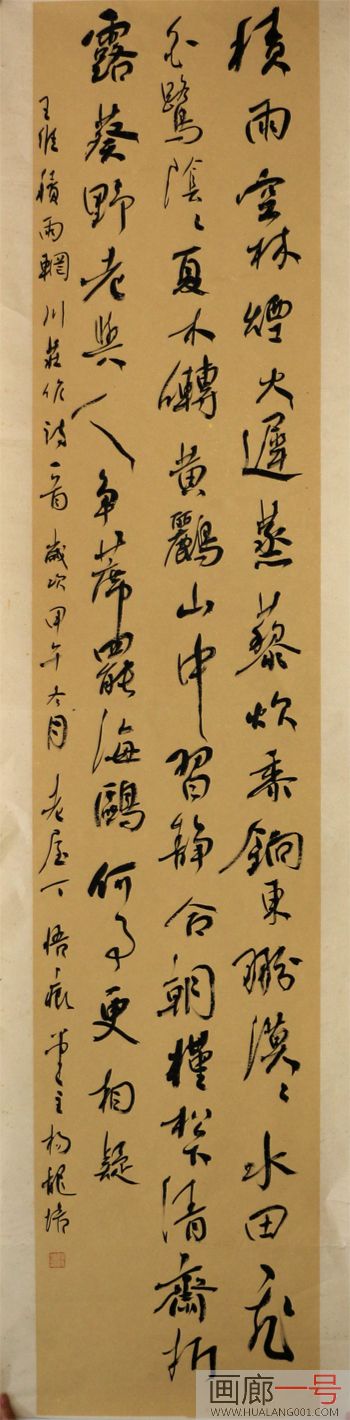 積雨空林煙火遲蒸藜炊黍餉東漠々水田飛
白鷺陰々夏木囀黃鸝山中習静合朝槿松下清齋折
露葵野老與人爭蓆罷海鷗何事更相疑
王維積雨輞川莊作詩一首歲次甲午冬月老屋下悟堂主楊培
画廊一号
WWW.HUALANG001.COM